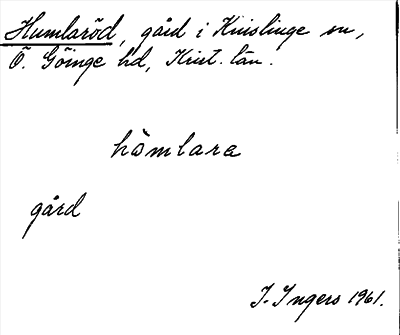 Humlaröd, gård i Knislinge sn,
Ö. Göinge hd, Krist. län.
hömlara
gård
I. Ingers 1961.